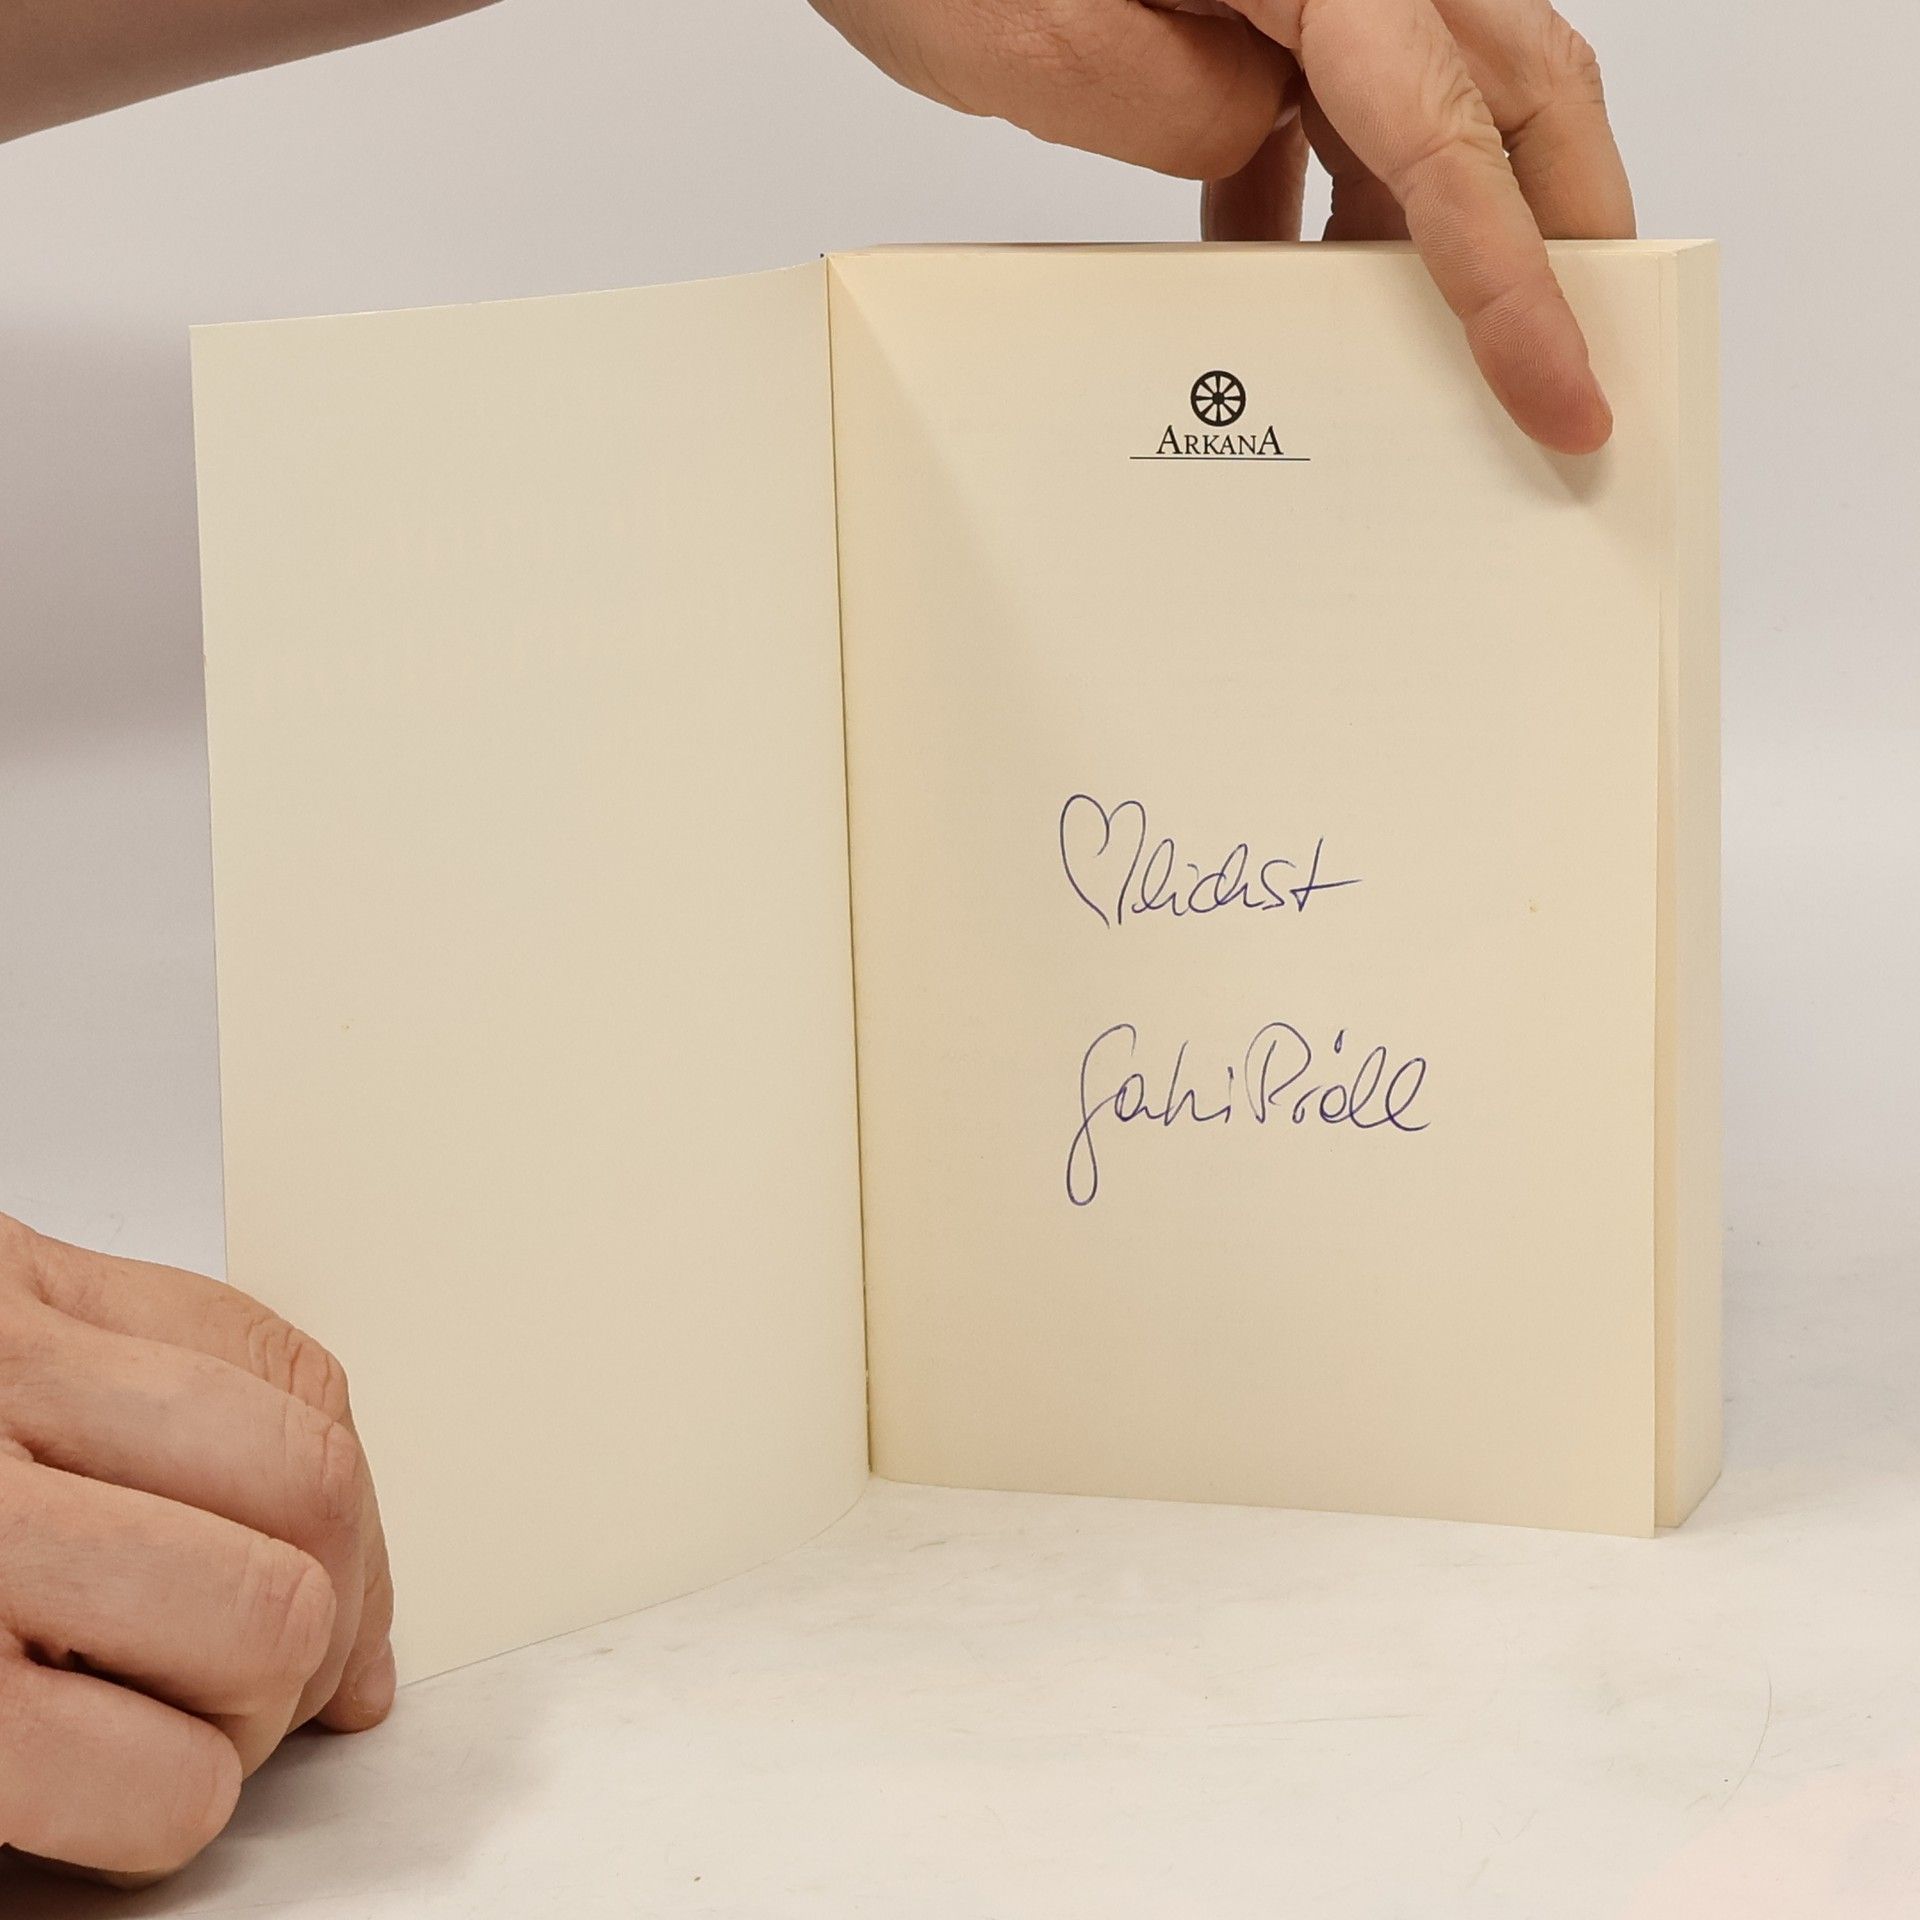 ARKANA
♡lichst
Gabi Pröll